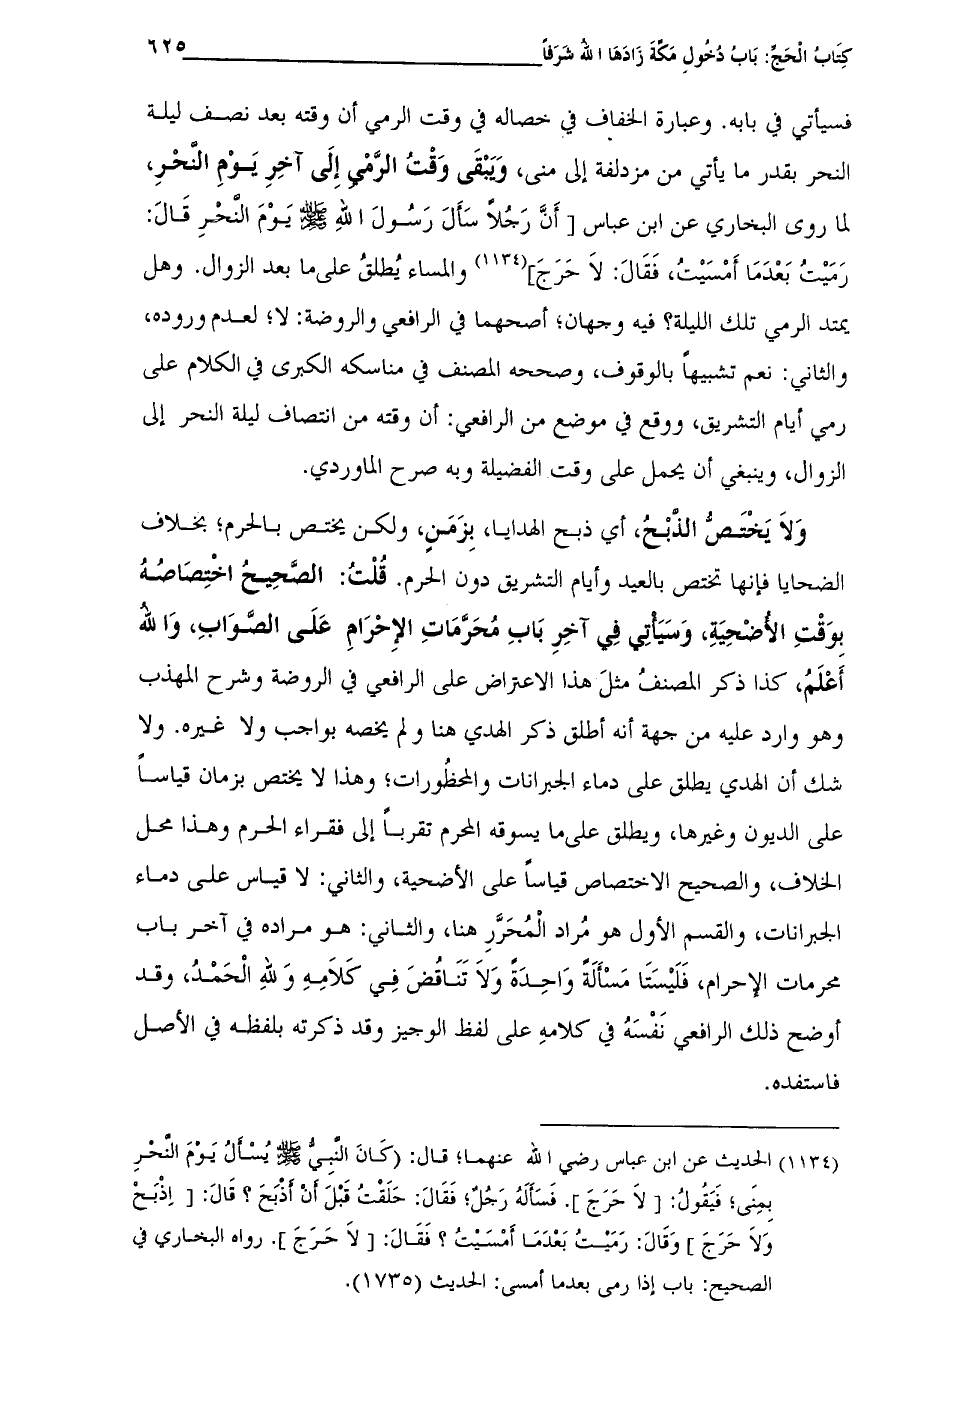 كِتَابُ الْحَجِّ: بَابُ دُخُولِ مَكَّةَ زَادَهَا اللهُ شَرَفاً ٦٢٥
فسيأتي في بابه. وعبارة الخفاف في خصاله في وقت الرمي أن وقته بعد نصف ليلة
النحر بقدر ما يأتي من مزدلفة إلى منى، وَيَبْقَى وَقْتُ الرَّمْيِ إِلَى آخِرِ يَوْمِ النَّحْرِ،
لما روى البخاري عن ابن عباس [ أَنَّ رَجُلاً سَأَلَ رَسُولَ اللهِ ﷺ يَوْمَ النَّحْرِ قَالَ:
رَمَيْتُ بَعْدَمَا أَمْسَيْتُ، فَقَالَ: لاَ حَرَجَ](١١٣٤) والمساء يُطلقُ على ما بعد الزوال. وهل
يمتد الرمي تلك الليلة؟ فيه وجهان؛ أصحهما في الرافعي والروضة: لا؛ لعدم وروده،
والثاني: نعم تشبيهاً بالوقوف، وصححه المصنف في مناسكه الكبرى في الكلام على
رمي أيام التشريق، ووقع في موضع من الرافعي: أن وقته من انتصاف ليلة النحر إلى
الزوال، وينبغي أن يحمل على وقت الفضيلة وبه صرح الماوردي.
وَلاَ يَخْتَصُّ الذَّبْحُ، أي ذبح الهدايا، بِزَمَنٍ، ولكن يختص بالحرم؛ بخلاف
الضحايا فإنها تختص بالعيد وأيام التشريق دون الحرم. قُلْتُ: الصَّحِيحُ اخْتِصَاصُهُ
بِوَقْتِ الأُضْحِيَةِ، وَسَيَأْتِي فِي آخِرِ بَابِ مُحَرَّمَاتِ الإِحْرَامِ عَلَى الصَّوَابِ، وَاللهُ
أَعْلَمُ، كذا ذكر المصنفُ مثلَ هذا الاعتراض على الرافعي في الروضة وشرح المهذب
وهو وارد عليه من جهة أنه أطلق ذكر الهدي هنا ولم يخصه بواجب ولا غيره. ولا
شك أن الهدي يطلق على دماء الجبرانات والمحظُورات؛ وهذا لا يختص بزمان قياساً
على الديون وغيرها، ويطلق على ما يسوقه المحرم تقرباً إلى فقراء الحرم وهذا محل
الخلاف، والصحيح الاختصاص قياساً على الأضحية، والثاني: لا قياس على دماء
الجبرانات، والقسم الأول هو مُراد الْمُحَرَّرِ هنا، والثاني: هو مراده في آخر باب
محرمات الإحرام، فَلَيْسَتَا مَسْأَلَةً وَاحِدَةً وَلاَ تَنَاقُضَ فِي كَلاَمِهِ وَلِلهِ الْحَمْدُ، وقد
أوضح ذلك الرافعي نَفْسَهُ في كلامهِ على لفظ الوجيز وقد ذكرته بلفظه في الأصل
فاستفده.
(١١٣٤) الحديث عن ابن عباس رضي الله عنهما؛ قال: (كَانَ النَّبِيُّ ﷺ يُسْأَلُ يَوْمَ النَّحْرِ
بِمِنَى؛ فَيَقُولُ: [ لاَ حَرَجَ ]. فَسَأَلَهُ رَجُلٌ؛ فَقَالَ: حَلَقْتُ قَبْلَ أَنْ أَذْبَحَ ؟ قَالَ: [ اِذْبَحْ
وَلاَ حَرَجَ ] وَقَالَ: رَمَيْتُ بَعْدَمَا أَمْسَيْتُ ؟ فَقَالَ: [ لاَ حَرَجَ ]. رواه البخاري في
الصحيح: باب إذا رمى بعدما أمسى: الحديث (١٧٣٥).